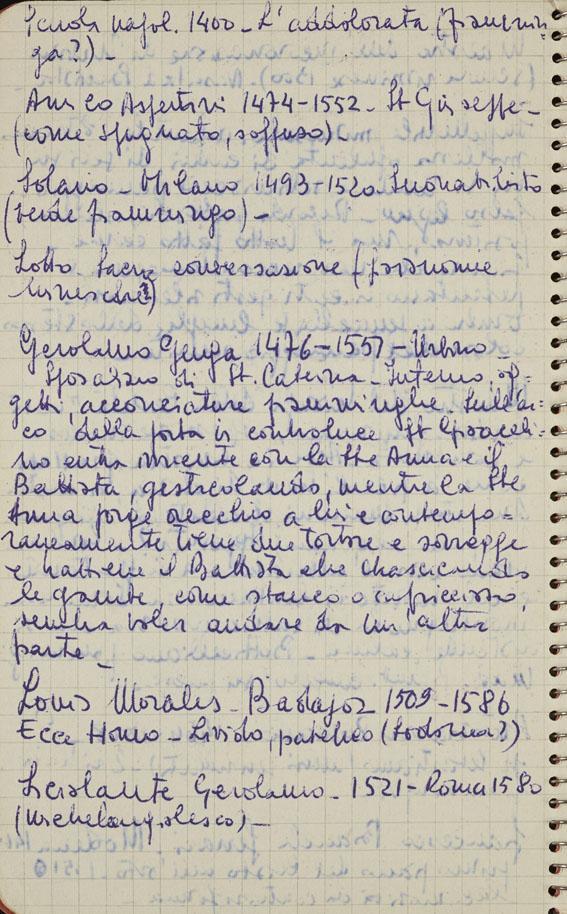 Scuola napol. 1400 - L'addolorata (fiammin-
ga?) -
Amico Aspertini 1474-1552 - St Giuseppe -
(come spugnato, soffuso) -
Solario - Milano 1493-1520
(verde fiammingo) -
Lotto Sacra conversazione (fisionomie
Gerolamo Genga 1476-1551 - Urbino -
Sposalizio di St. Caterina - Interno, og-
getti, acconciature fiamminghe. Sull'ar-
co della porta in controluce St
no entra con la Ste Anna e il
Battista, gesticolando, mentre la Ste
Anna porge orecchio a lui e contempo-
raneamente tiene due tortore e sorregge
e trattiene il Battista che
le gambe come stanco o capriccioso,
sembra voler andare da un'altra
parte -
Louis Morales - Badajoz 1509-1586
Ecce Homo - Livido, patetico (Sodoma?)
Gerolamo - 1521 - Roma 1580
(michelangiolesco) -